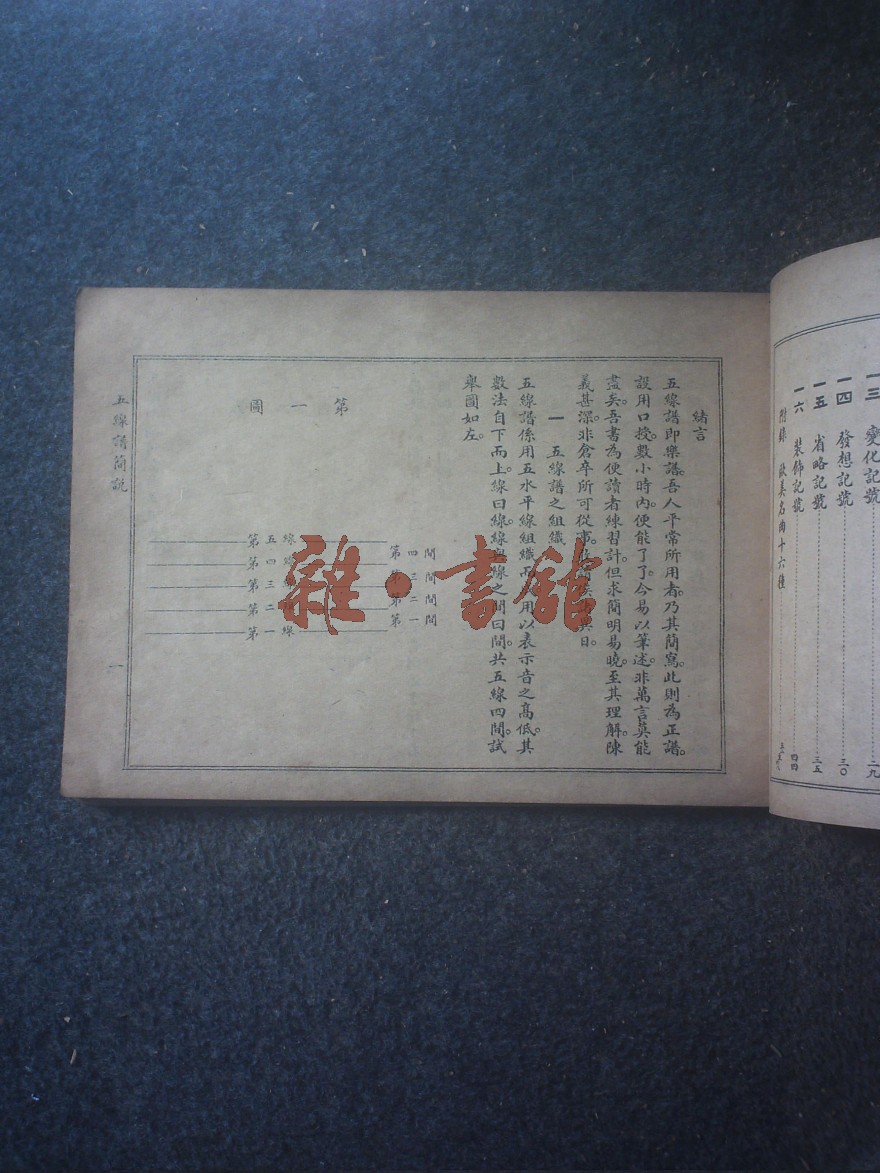 一三 變化記號 二九
一四 發想記號 三〇
一五 省略記號 三五
一六 裝飾記號 四四
附錄 歐美名曲十六種
緒言
五線譜即樂譜。吾人平常所用者。乃其簡寫。此則為正譜。
設用口授。數小時內。便能了了。今易以筆述。非萬言莫能
盡矣。吾書為便讀者練習計。但求簡明易曉。至其理解。陳
義甚深。非倉卒所可從事。異日。
一 五線譜之組織
五線譜係用五水平線組織而用以表示音之高低。其
數法自下而上。線曰線。線與線之間曰間。共五線四間。試
舉圖如左。
第一圖
第五線
第四間
第四線
第三間
第三
第二間
第二
第一間
第一線
五線譜簡説
一
雜·書館